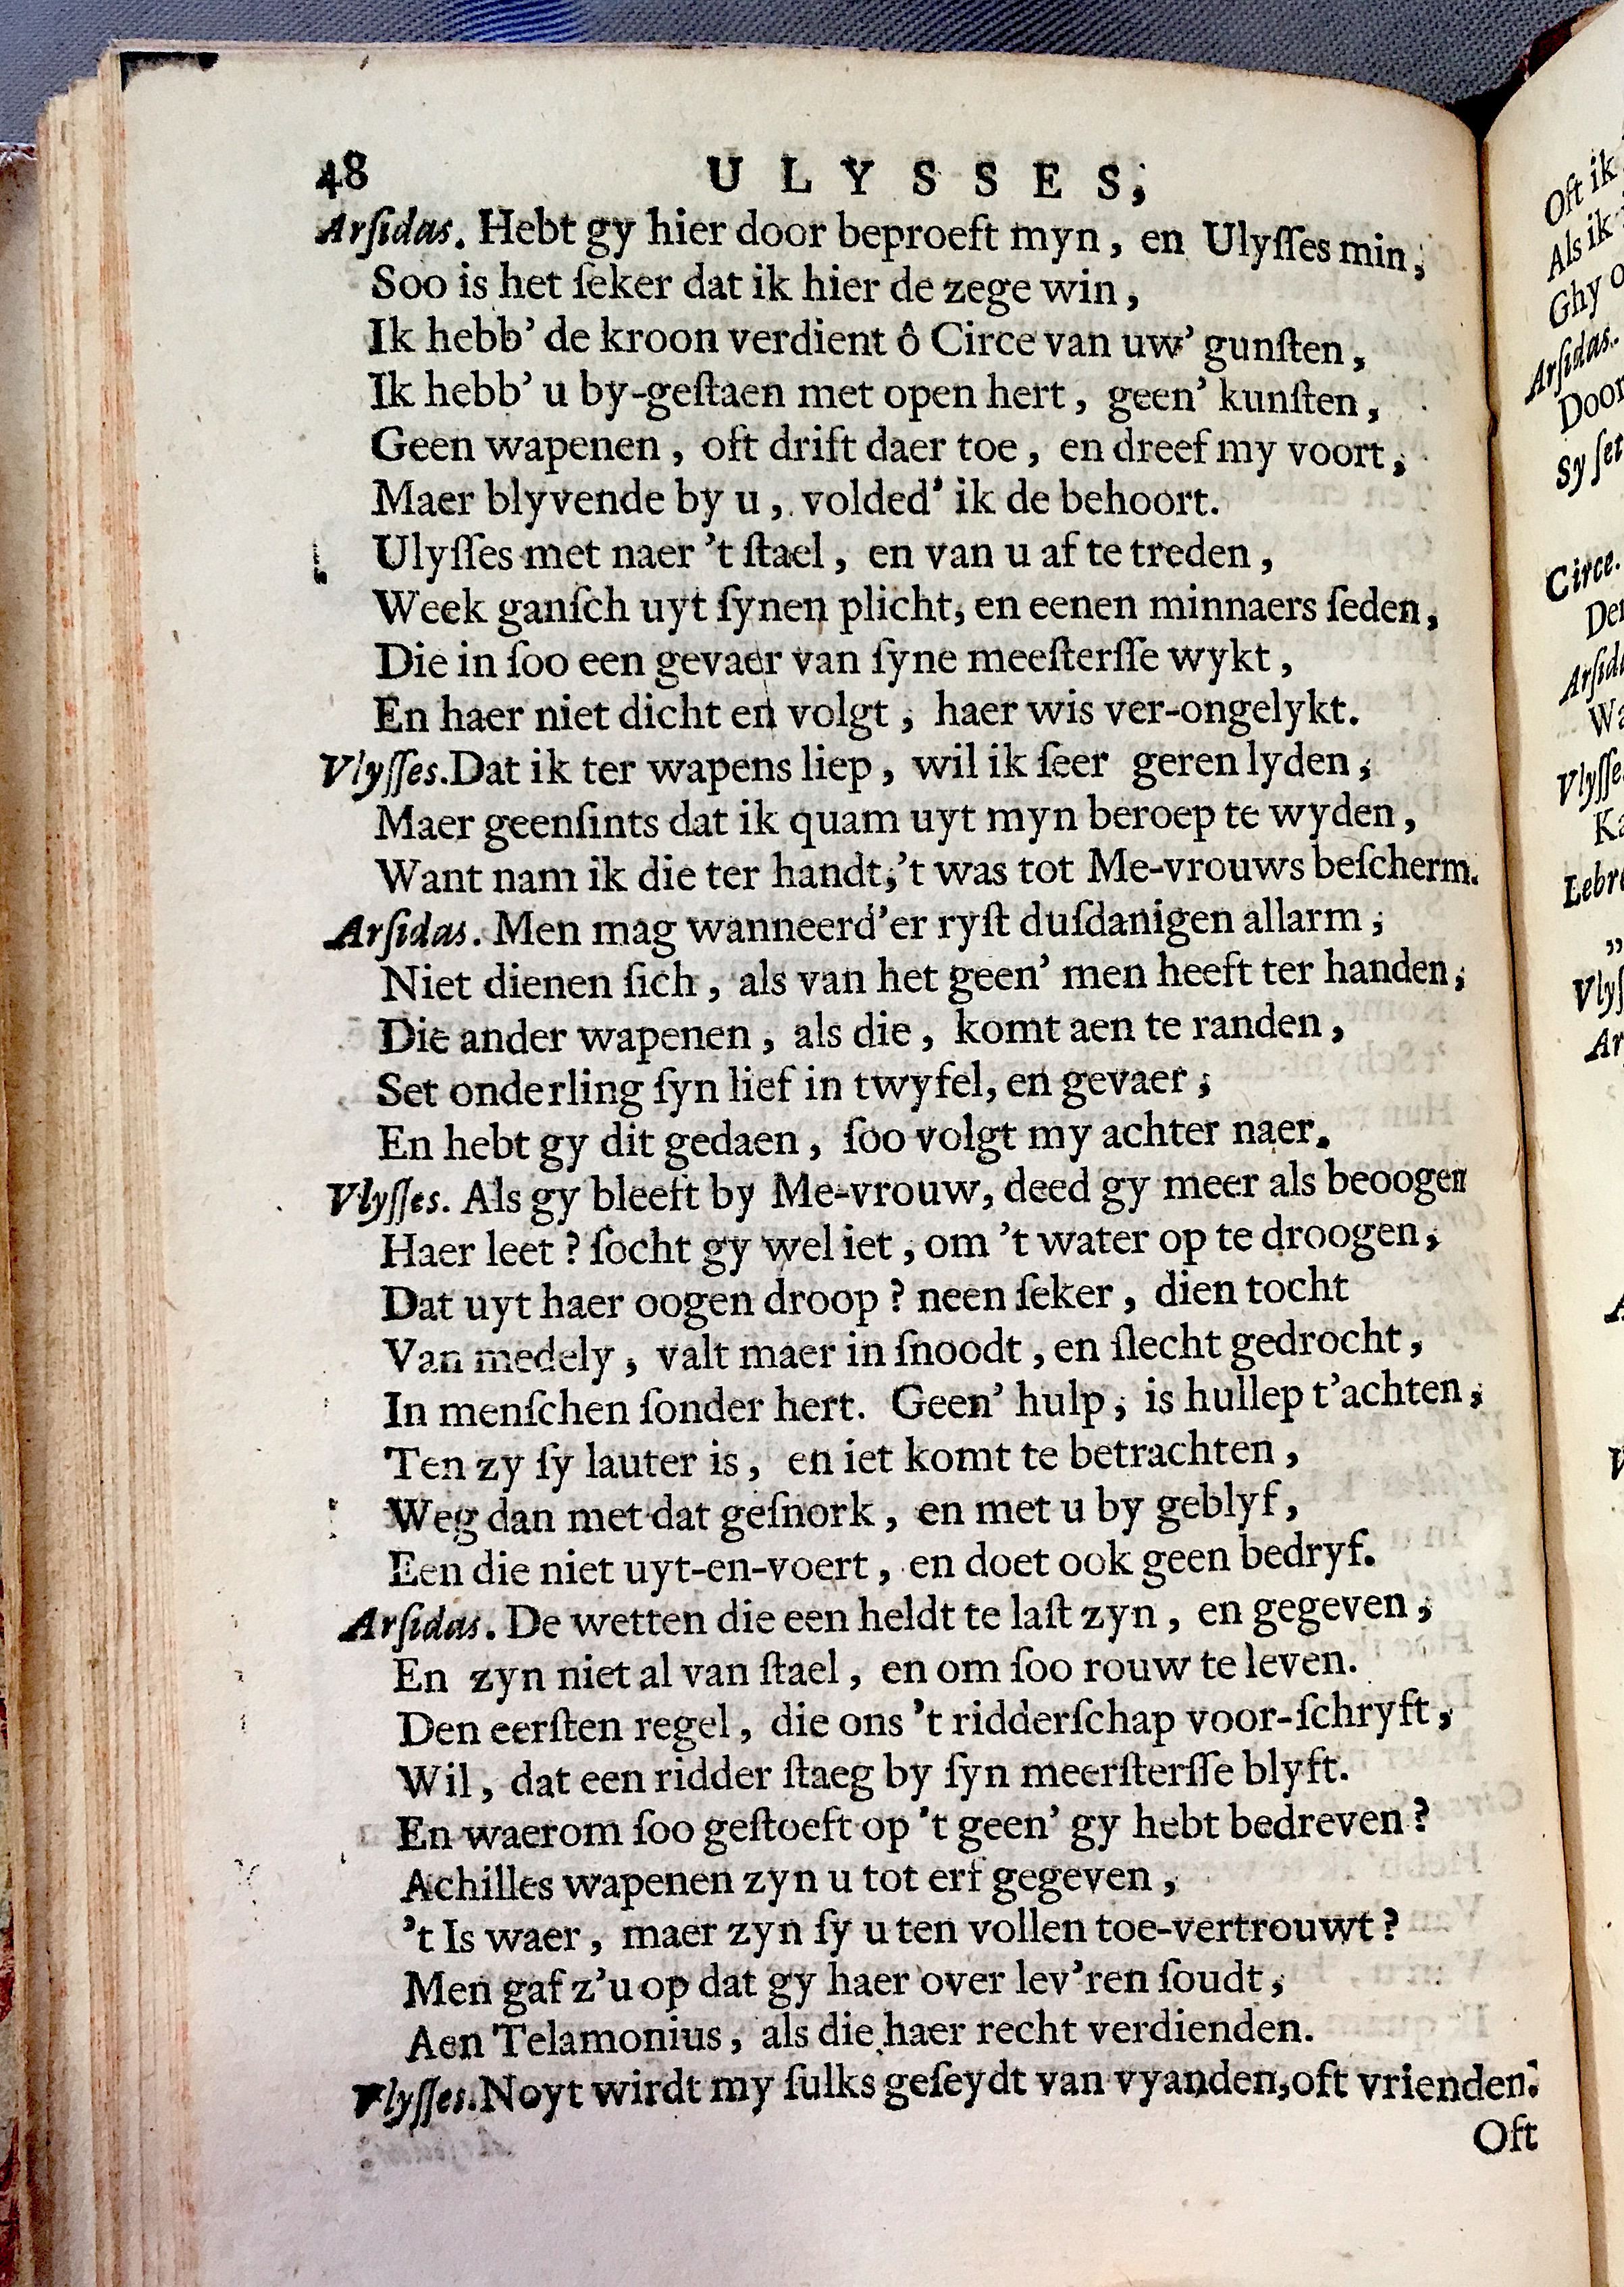 48 ULYSSES,
Arſidas. Hebt gy hier door beproeft myn, en Ulyſſes min,
Soo is het ſeker dat ik hier de zege win,
Ik hebb' de kroon verdient ô Circe van uw' gunſten,
Ik hebb' u by-geſtaen met open hert, geen' kunſten,
Geen wapenen, oft drift daer toe, en dreef my voort,
Maer blyvende by u, volded' ik de behoort.
Ulyſſes met naer 't ſtael, en van u af te treden,
Week ganſch uyt ſynen plicht, en eenen minnaers ſeden,
Die in ſoo een gevaer van ſyne meeſterſſe wykt,
En haer niet dicht en volgt, haer wis ver-ongelykt.
Vlyſſes. Dat ik ter wapens liep, wil ik ſeer geren lyden,
Maer geenſints dat ik quam uyt myn beroep te wyden,
Want nam ik die ter handt,'t was tot Me-vrouws beſcherm.
Arſidas. Men mag wanneerd'er ryſt duſdanigen allarm,
Niet dienen ſich, als van het geen' men heeft ter handen,
Die ander wapenen, als die, komt aen te randen,
Set onderling ſyn lief in twyfel, en gevaer;
En hebt gy dit gedaen, ſoo volgt my achter naer.
Vlyſſes. Als gy bleeft by Me-vrouw, deed gy meer als beoogen
Haer leet? ſocht gy wel iet, om 't water op te droogen,
Dat uyt haer oogen droop? neen ſeker, dien tocht
Van medely, valt maer in ſnoodt, en ſlecht gedrocht,
In menſchen ſonder hert. Geen' hulp, is hullep t'achten,
Ten zy ſy lauter is, en iet komt te betrachten,
Weg dan met dat geſnork, en met u by geblyf,
Een die niet uyt-en-voert, en doet ook geen bedryf.
Arſidas. De wetten die een heldt te laſt zyn, en gegeven,
En zyn niet al van ſtael, en om ſoo rouw te leven.
Den eerſten regel, die ons 't ridderſchap voor-ſchryft,
Wil, dat een ridder ſtaeg by ſyn meerſterſſe blyft.
En waerom ſoo geſtoeft op 't geen' gy hebt bedreven?
Achilles wapenen zyn u tot erf gegeven,
't Is waer, maer zyn ſy u ten vollen toe-vertrouwt?
Men gaf z'u op dat gy haer over lev'ren ſoudt,
Aen Telamonius, als die haer recht verdienden.
Vlyſſes. Noyt wirdt my ſulks geſeydt van vyanden, oft vrienden.
Oft
Oft ik
Als ik
Ghy
Arſidas.
Door
Sy
Circe.